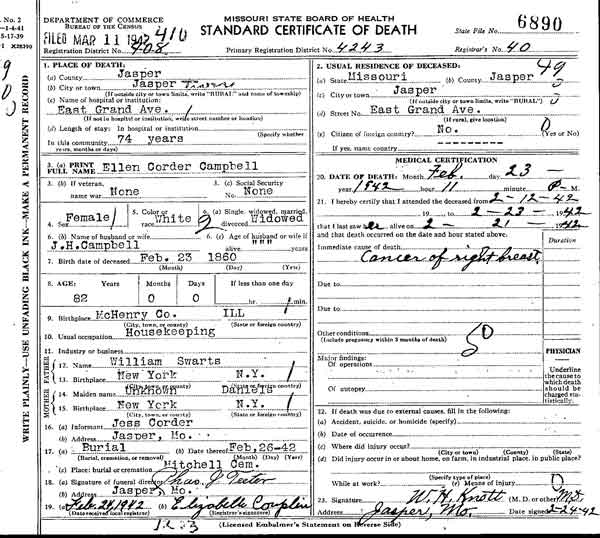 No. 2
1-4-41
5-17-39
1 X28390
DEPARTMENT OF COMMERCE
BUREAU OF THE CENSUS
MISSOURI STATE BOARD OF HEALTH
STANDARD CERTIFICATE OF DEATH
State File No. 6890
FILED MAR 11 1942 410
Registration District No. 408
Primary Registration District No. 4243
Registrar's No. 40
WRITE PLAINLY—USE UNFADING BLACK INK—MAKE A PERMANENT RECORD
1. PLACE OF DEATH:
(a) County Jasper
(b) City or town Jasper
(If outside city or town limits, write "RURAL" and name of township)
(c) Name of hospital or institution:
East Grand Ave.
(If not in hospital or institution, write street number or location)
(d) Length of stay: In hospital or institution
(Specify whether
In this community 74 years
years, months or days)
3. (a) PRINT FULL NAME Ellen Corder Campbell
3. (b) If veteran, name war None
3. (c) Social Security No. None
4. Sex Female
5. Color or race White
6. (a) Single, widowed, married, divorced Widowed
6. (b) Name of husband or wife J.H.Campbell
6. (c) Age of husband or wife if alive """ years
7. Birth date of deceased Feb. 23 1860
(Month) (Day) (Year)
8. AGE: Years Months Days If less than one day
82 0 0 hr. min.
9. Birthplace McHenry Co. ILL
(City, town, or county) (State or foreign country)
10. Usual occupation Housekeeping
11. Industry or business
FATHER
12. Name William Swarts
13. Birthplace New York N.Y.
(City, town, or county) (State or foreign country)
MOTHER
14. Maiden name Unknown Daniels
15. Birthplace New York N.Y.
(City, town, or county) (State or foreign country)
16. (a) Informant Jess Corder
(b) Address Jasper, Mo.
17. (a) Burial (b) Date thereof Feb,26-42
(Burial, cremation, or removal) (Month) (Day) (Year)
(c) Place: burial or cremation Mitchell Cem.
18. (a) Signature of funeral director Chas. J. Teeter
(b) Address Jasper, Mo.
19. (a) Feb. 24, 1942 (b) Elizabeth Couplin
(Date received local registrar) (Registrar's signature)
2. USUAL RESIDENCE OF DECEASED:
(a) State Missouri (b) County Jasper 49
(c) City or town Jasper
(If outside city or town limits, write "RURAL")
(d) Street No. East Grand Ave.
(If rural, give location)
(e) Citizen of foreign country? No. (Yes or No)
If yes, name country ---------
MEDICAL CERTIFICATION
20. DATE OF DEATH: Month Feb. day 23
year 1942 hour 11 minute P M.
21. I hereby certify that I attended the deceased from 2-12-42
19 to 2-23- 1942
that I last saw her alive on 2- 21- 1942
and that death occurred on the date and hour stated above.
Duration
Immediate cause of death
Cancer of right breast
Due to
Due to
Other conditions
(Include pregnancy within 3 months of death)
50
Major findings:
Of operations
Of autopsy
PHYSICIAN
Underline the cause to which death should be charged statistically.
22. If death was due to external causes, fill in the following:
(a) Accident, suicide, or homicide (specify)
(b) Date of occurrence
(c) Where did injury occur?
(City or town) (County) (State)
(d) Did injury occur in or about home, on farm, in industrial place, in public place?
(Specify type of place)
While at work? (e) Means of injury
23. Signature W. H. Knott (M. D. or other) M.D.
Address Jasper, Mo. Date signed 2-24-42
(Licensed Embalmer's Statement on Reverse Side)